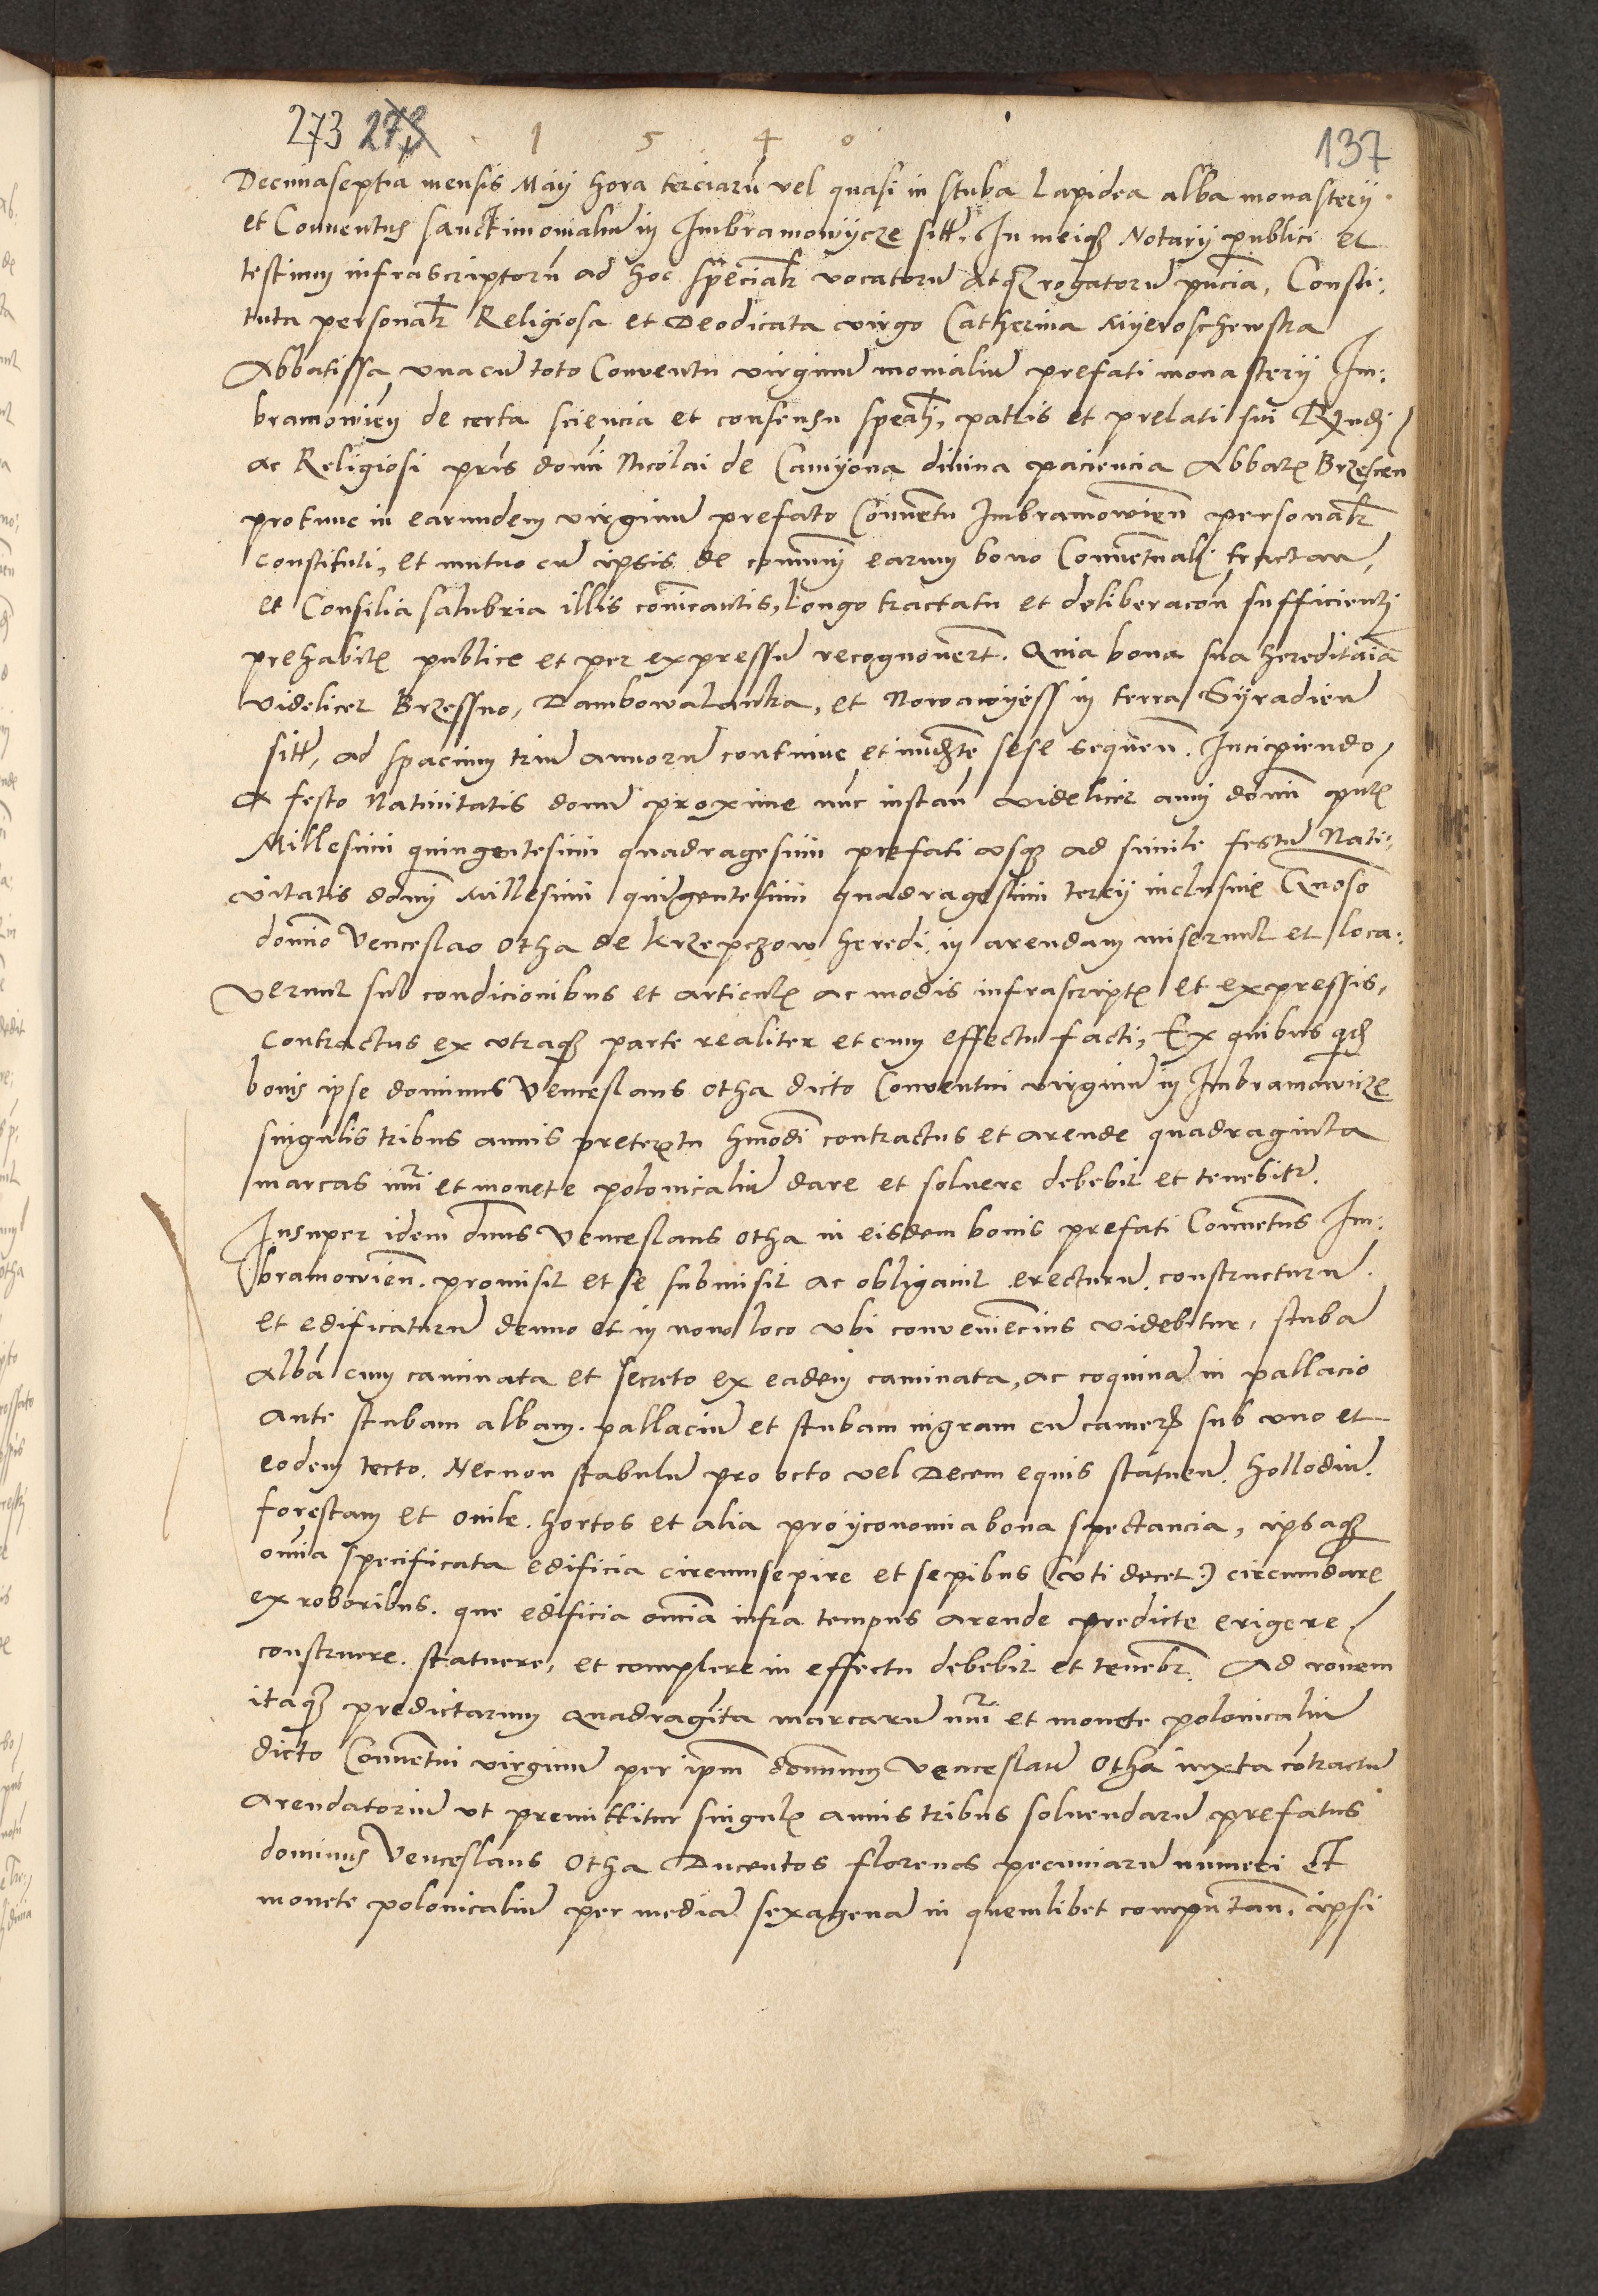 273 273 1 5 4 0 137
Decimaseptīa mensis Maij hora terciarū vel quasi in stuba Lapidea alba monasterij
et Conventus sanctimonialiū in Imbramowijcze sitt. In meiqz Notarij publici et
testium infrascriptorū ad hoc specialr vocatorū atqz rogatorū pncia, Consti:
tuta personalr Religiosa et Deodicata virgo Catherina Mijeroschewska
Abbatissa vnacū toto Conventu virginū monialiū prefati monasterij Im:
bramowien de certa sciencia et consensu speali, patris et prelati sui Rndi
ac Religiosi pris domi Nicolai de Camijona divina paciencia Abbatis Brzescen
protunc in earundem virginū prefato Conventu Imbramowien personalr
constituti, et mutuo cū ipsis de communi earum bono Conventuali tractan,
et Consilia salubria illis cōmicantis, longo tractatu et deliberacōn sufficienti
prehabitis publice et per expressū recognovert. Quia bona sua hereditaria
videlicet Brzessno, Dambowalanka, et Nowawijess in terra Sijradien
sitt, ad spacium triū annorū continue et inmdte sese sequen. Incipiendo
a festo Nativitatis domi proxime nūc instan videlicet anni domi pntis
Millesimi quingentesimi quadragesimi prefati vsqz ad simile festū Nati:
vitatis domi Millesimi quigentesimi quadragesimi tercij inclusive Gnoso
domino Venceslao Otha de Krzepczow heredi in arendam miserunt et loca:
verunt sub condicionibus et articulis ac modis infrascriptis et expressis,
contractus ex vtraqz parte realiter et cum effectu facti, Ex quibus qdē
bonis ipse dominus Venceslaus Otha dicto Conventui virginū in Imbramowicze
singulis tribus annis pretextu hmōdi contractus et arende quadraginta
marcas nūri et monete polonicaliū dare et solvere debebit et tenebitr.
Insuper idem dnus Venceslaus Otha in eisdem bonis prefati Conventus Im:
bramowien. promisit et se submisit ac obligavit erecturū. constructurū.
et edificaturū denuo et in novo loco vbi conveniencius videbitur, stubā
albā cum caminata et secreto ex eadem caminata, ac coquinā in pallacio
ante stubam albam. pallaciū et stubam nigram cū camera sub vno et
eodem tecto. Necnon stabulū pro octo vel Decem equis statuen. hollodiū.
forestam et Ovile. hortos et alia pro ijconomia bona spectancia, ipsaqz
omia specificata edificia circumsepire et sepibus (vti decet:) circumdare
ex roboribus. que edificia omia infra tempus arende predicte erigere
construere. statuere, et complere in effectu debebit et tenebr. Ad rōnem
itaqz predictarum quadragīta marcarū nūri et monete polonicaliū
dicto Conventui virginū per ipm dominum Venceslaū Otha iuxta cōtractū
arendatoriū vt premittitur singulis annis tribus solvendarū prefatus
dominus Venceslaus Otha Ducentos florenos pecuniarū numeri et
monete polonicaliū per mediā sexagenā in quemlibet computan. ipsi